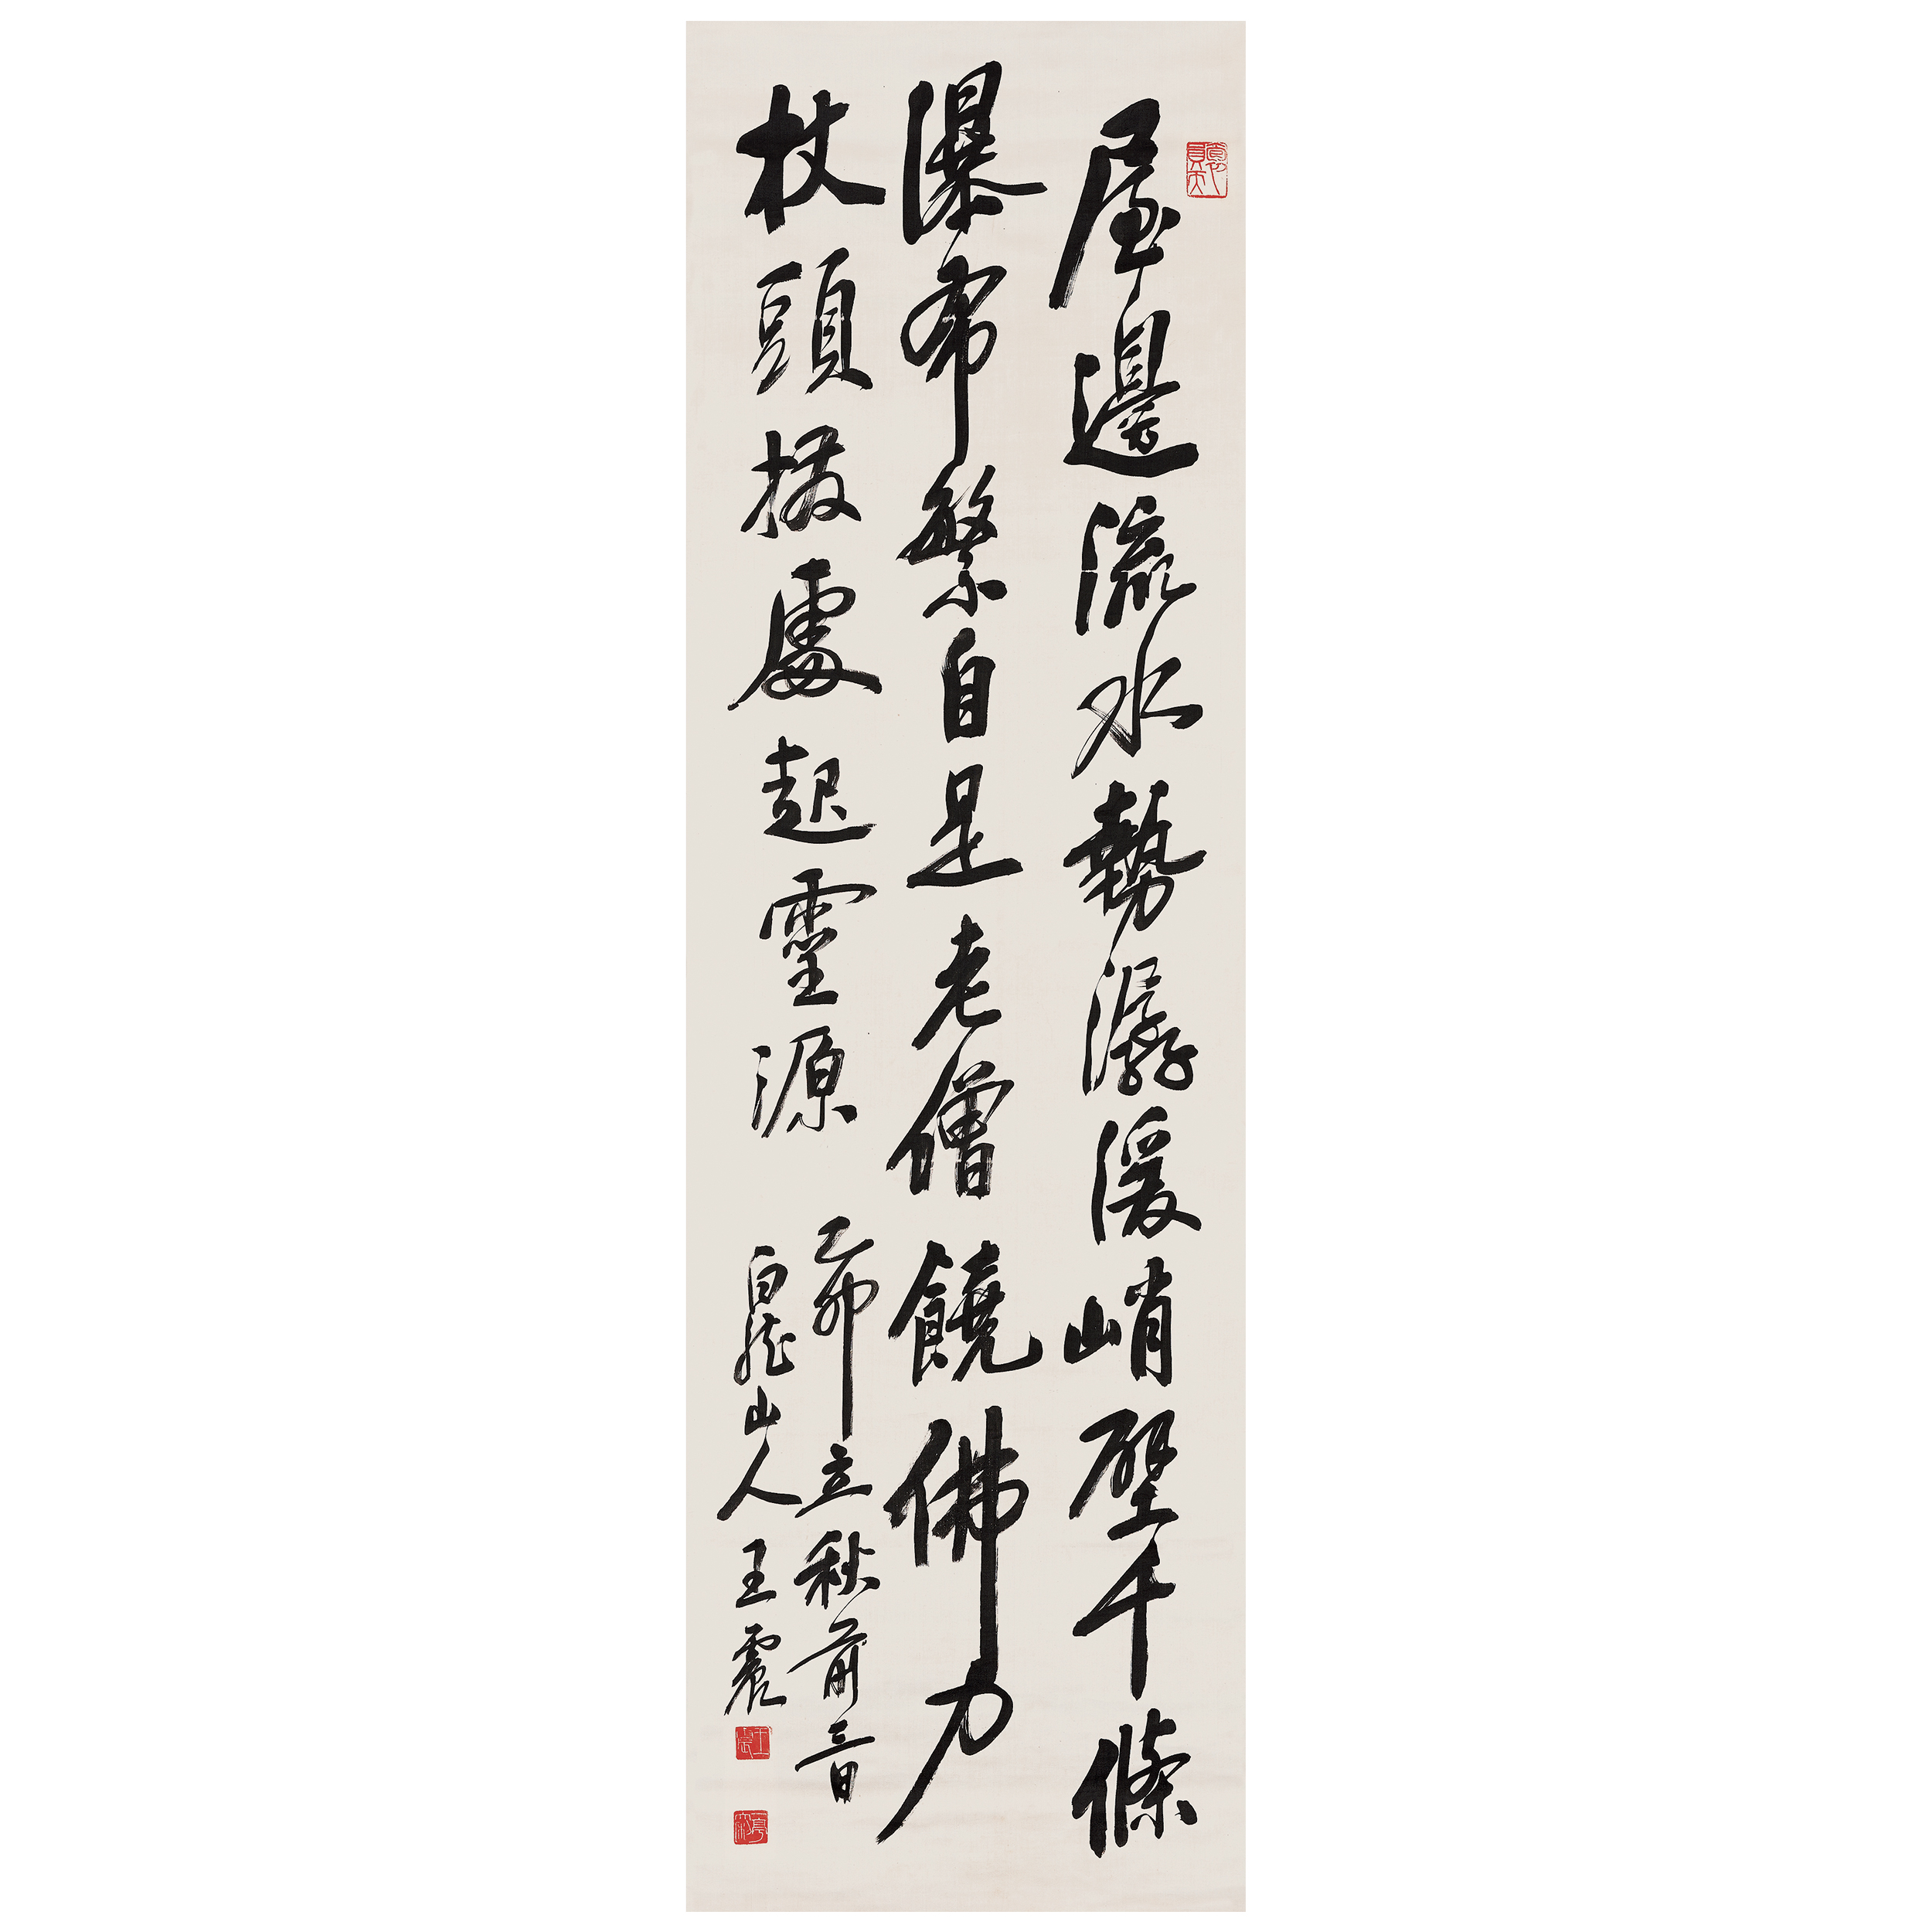 屋邊流水勢潺湲峭壁千條
瀑布繁自是老僧饒佛力
杖頭撥處起靈源
乙卯立秋前日
白龍山人王震